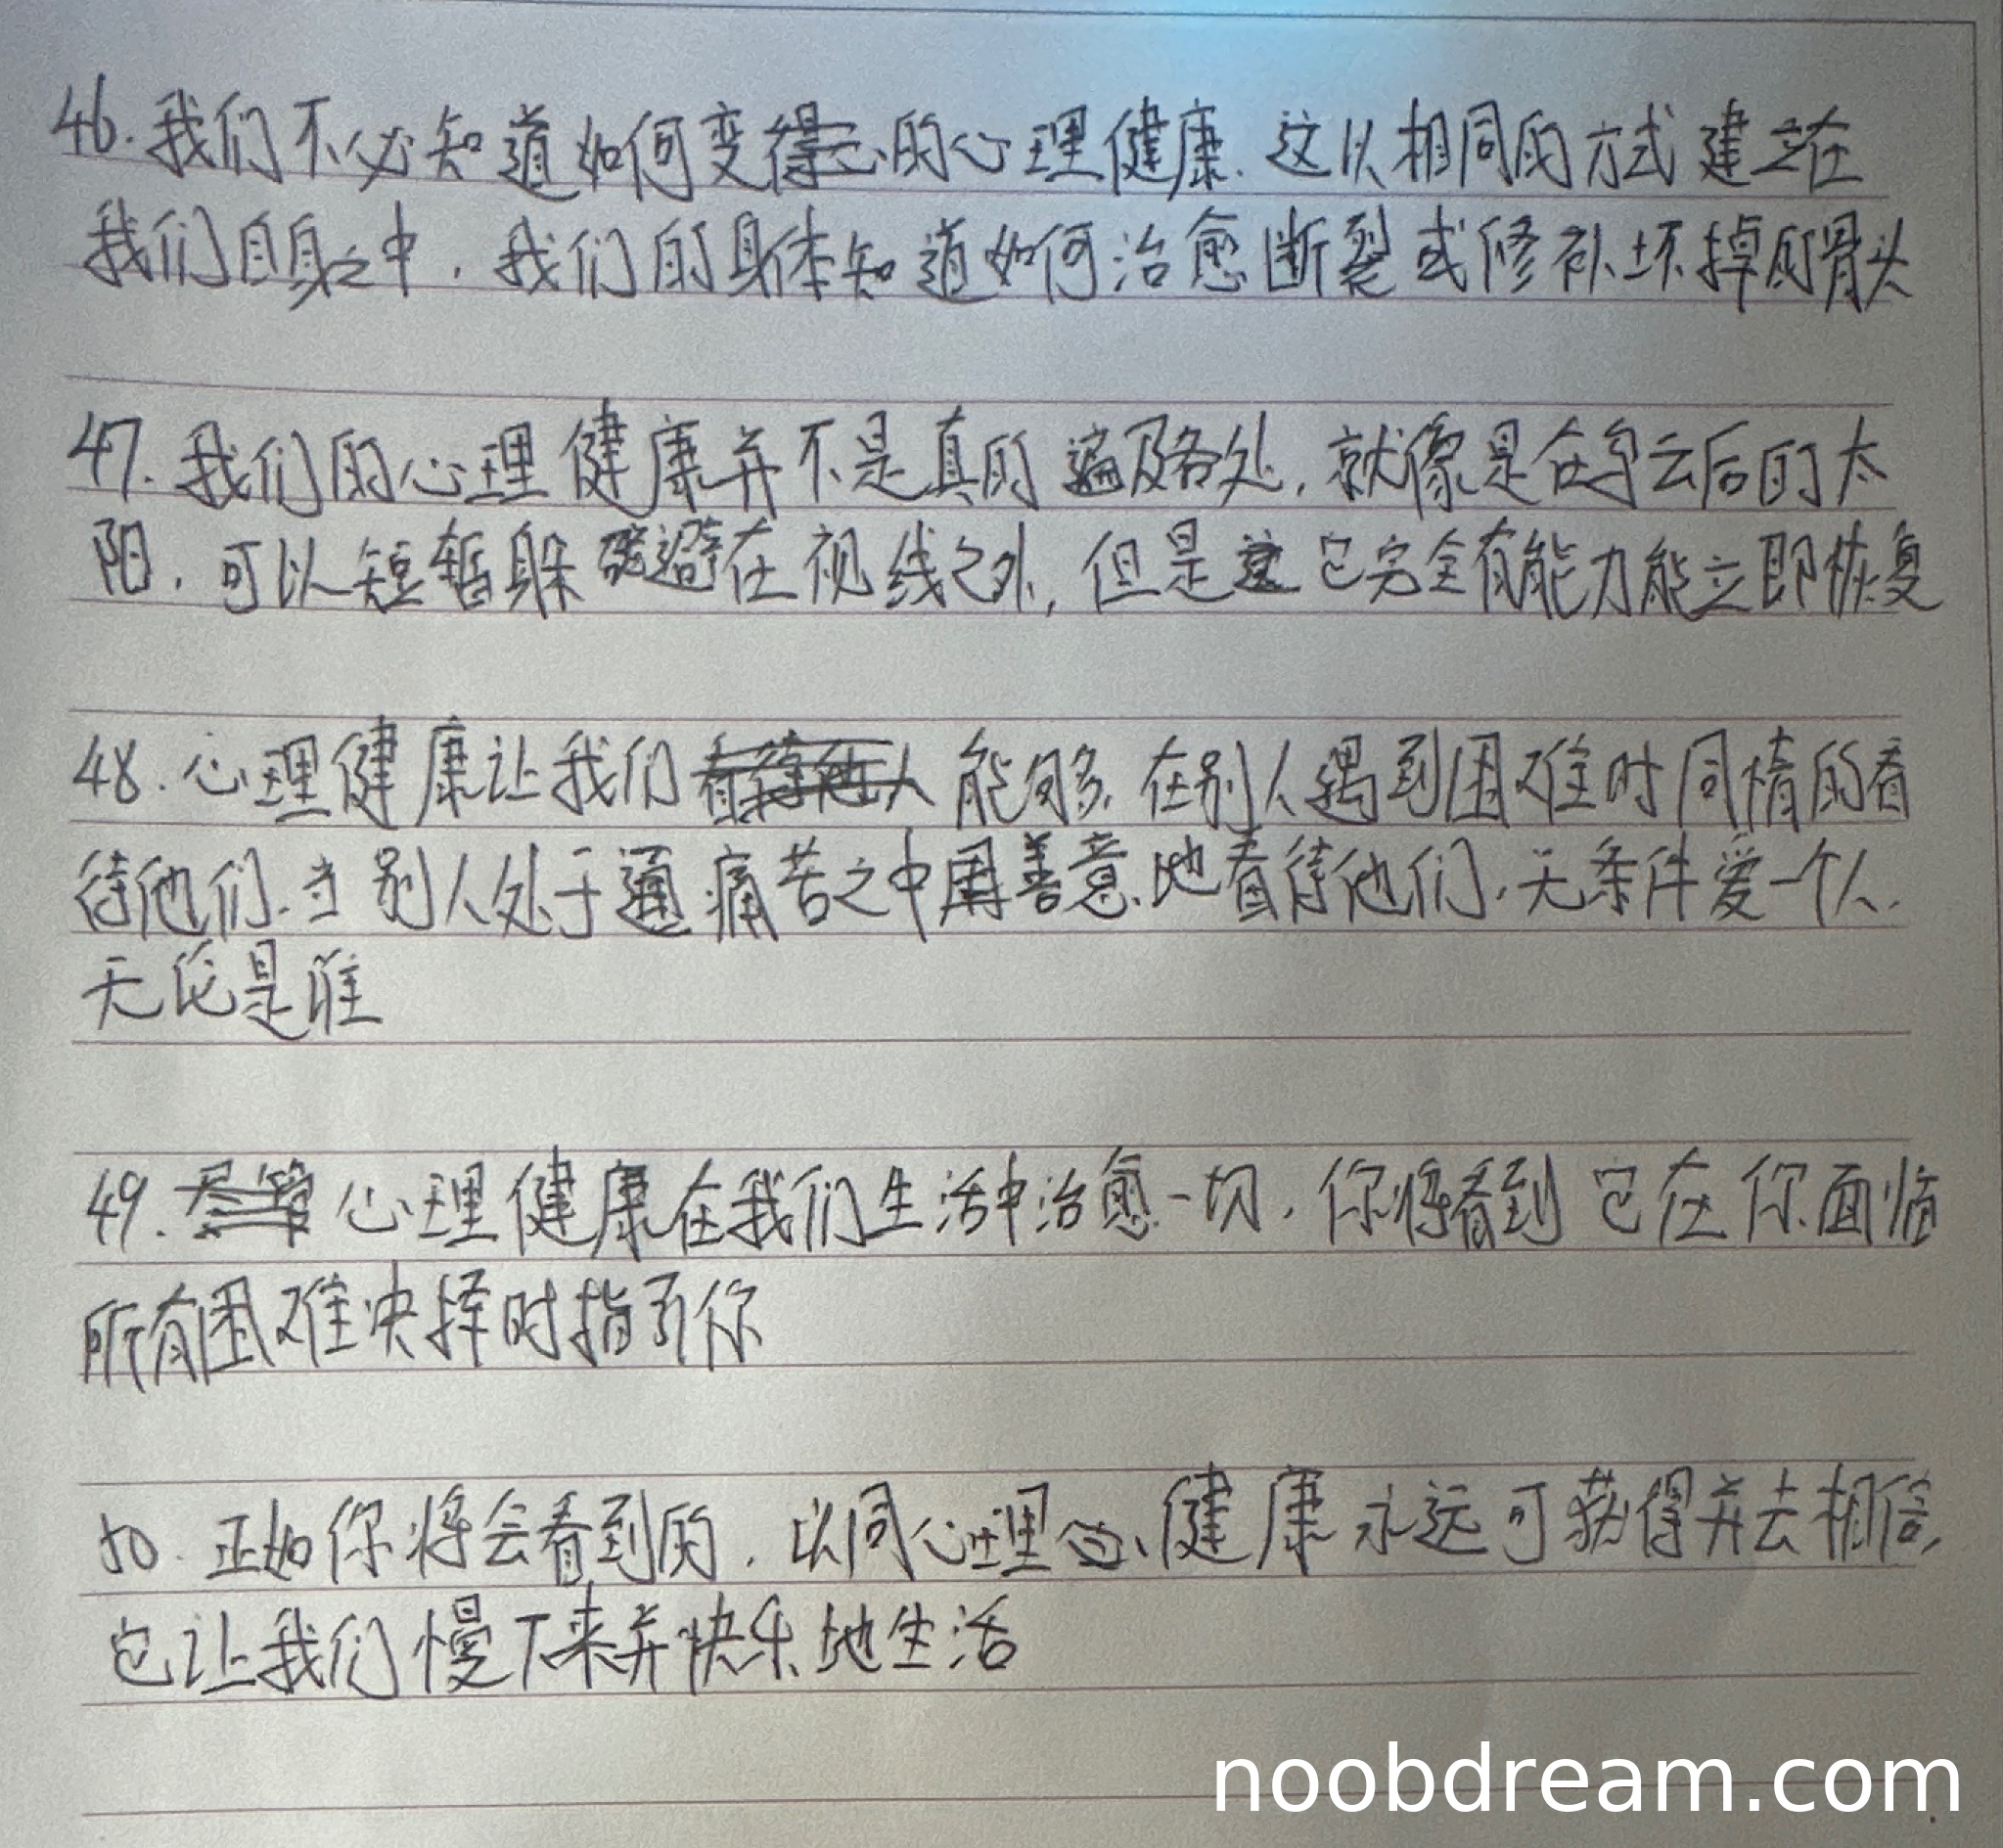 46.我们不必知道如何变得的心理健康.这以相同的方式建立在
我们自身之中.我们的身体知道如何治愈断裂或修补坏掉的骨头
47.我们的心理健康并不是真的遍及各处,就像是在乌云后的太
阳.可以短暂躲避在视线之外,但是它完全有能力能立即恢复
48.心理健康让我们能够在别人遇到困难时同情的看
待他们.当别人处于痛苦之中用善意地看待他们.无条件爱一个人.
无论是谁
49.心理健康在我们生活中治愈一切.你将看到它在你面临
所有困难决择时指引你
50.正如你将会看到的.认同心理健康永远可获得并去相信,
它让我们慢下来并快乐地生活
noobdream.com